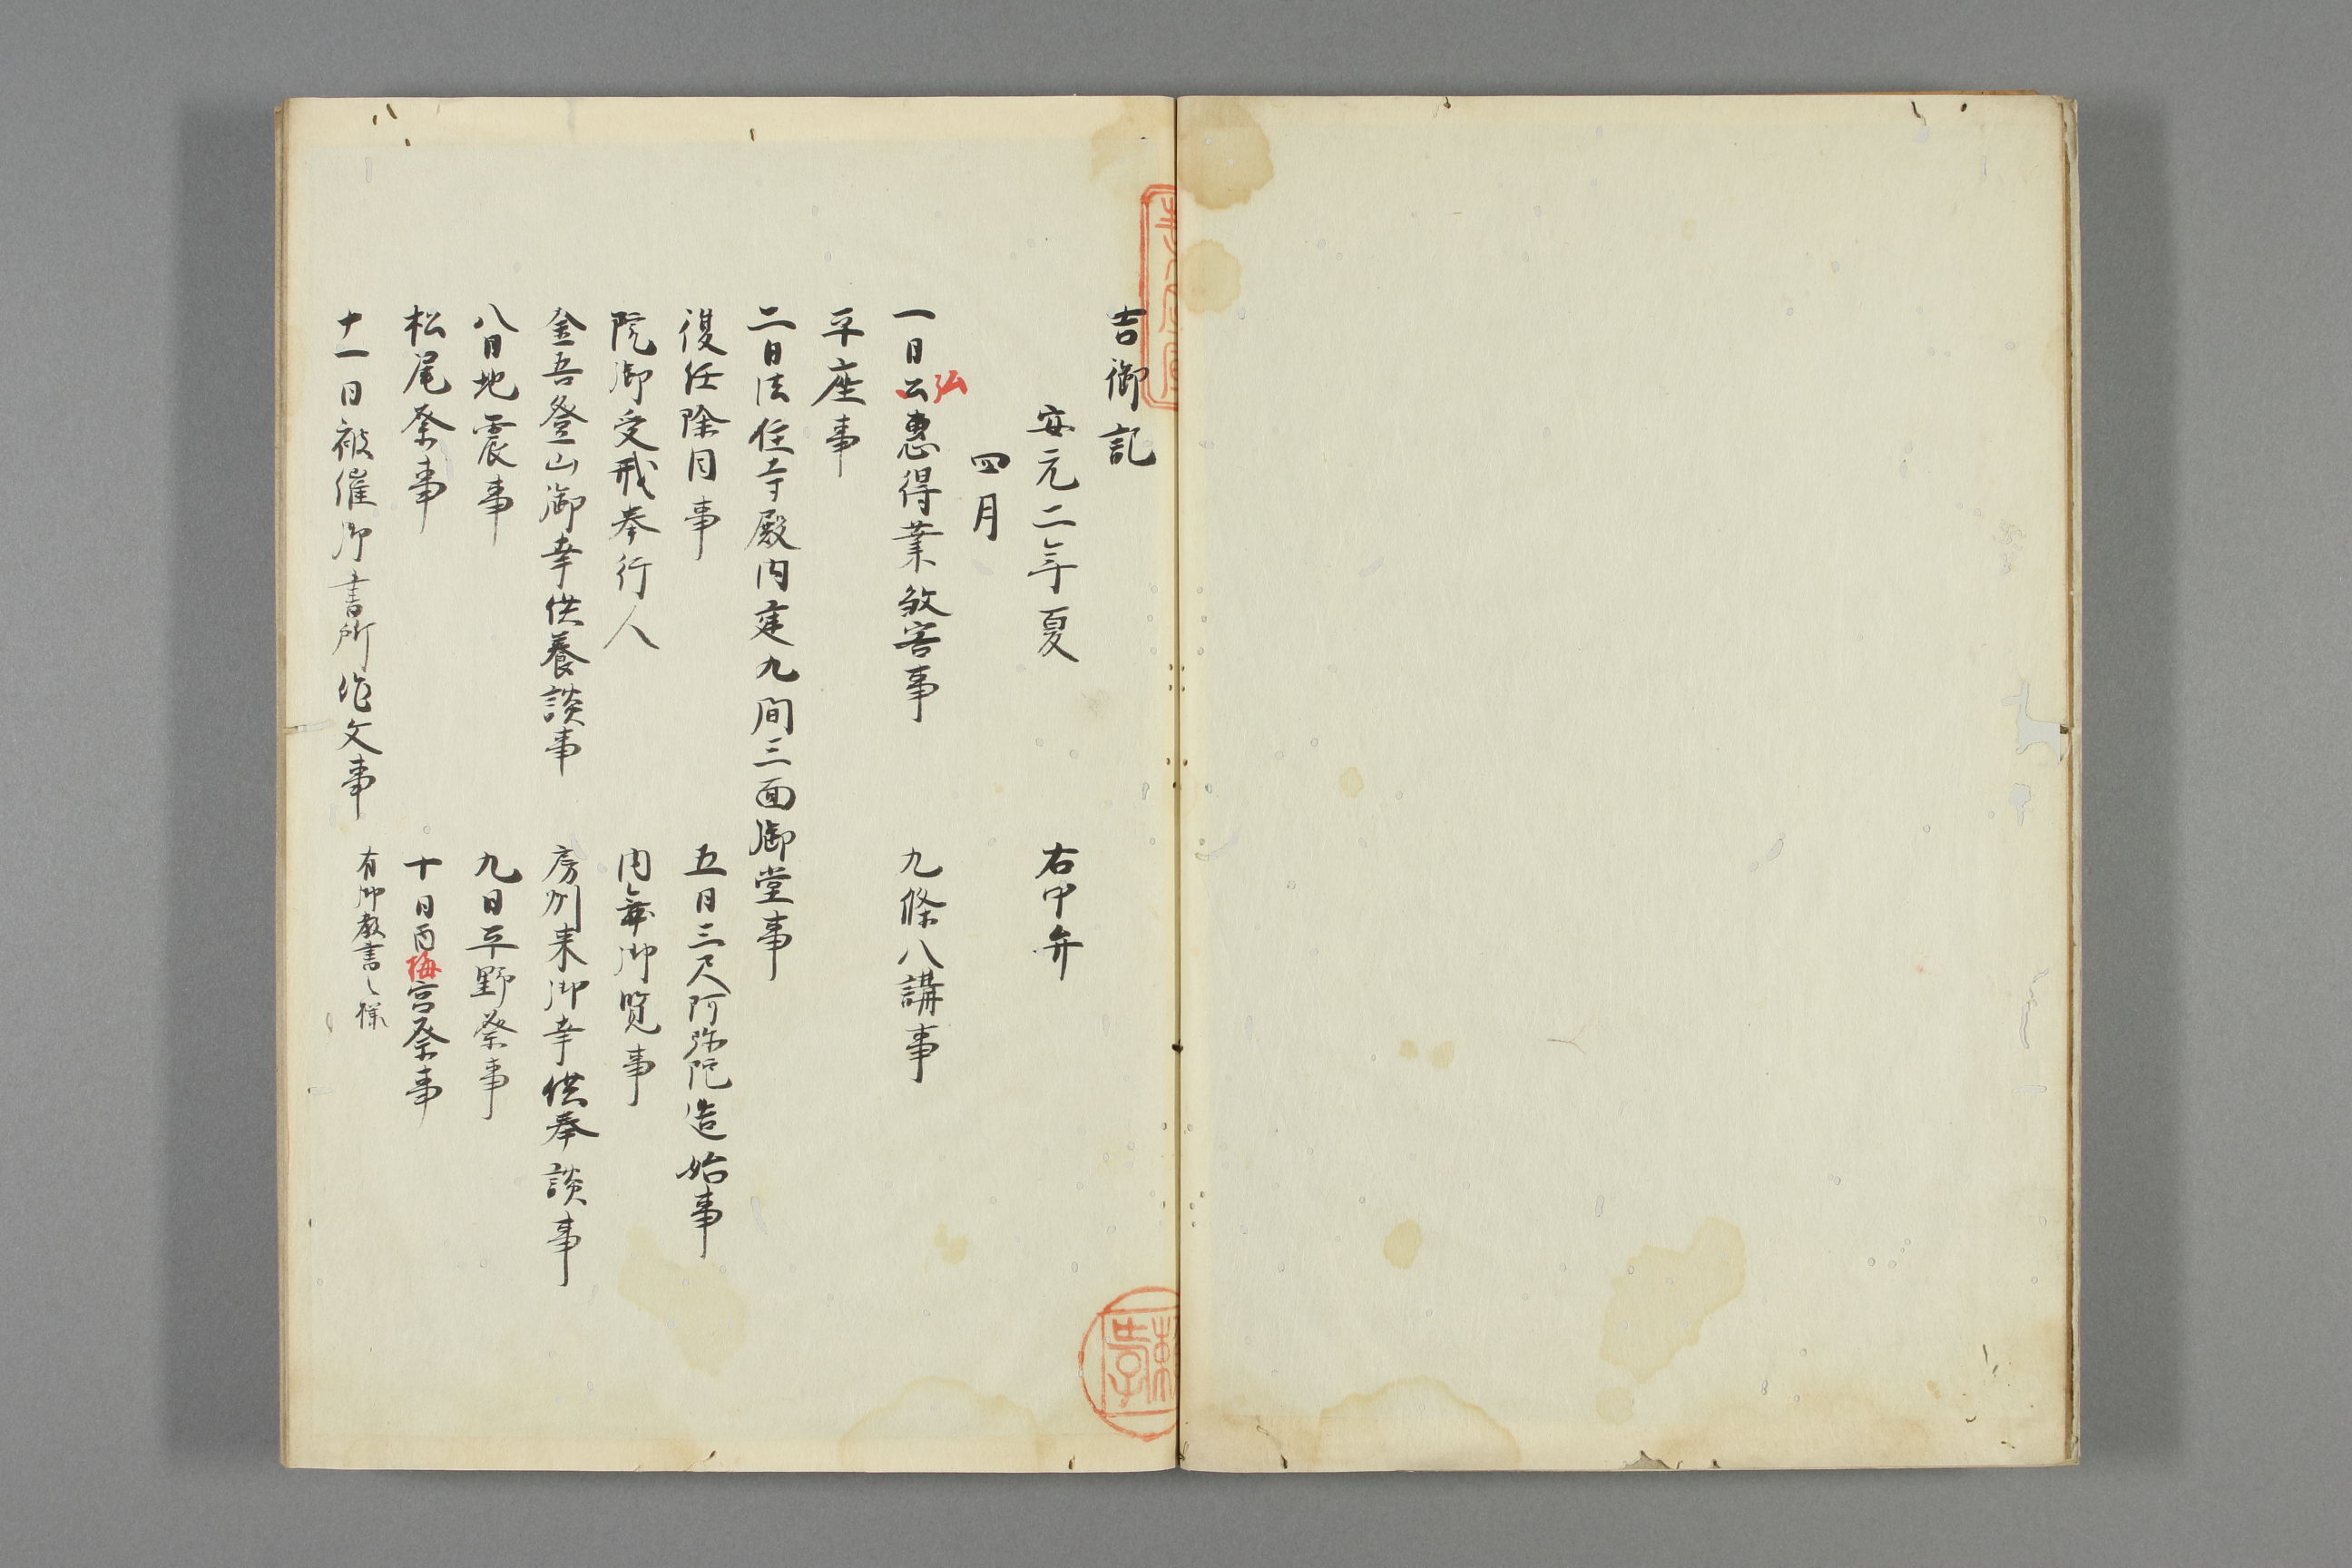 吉御記
安元二年夏　右中弁
四月
一日公弘惠得業敛害事　九條八講事
平座事
二日法住寺殿内建九間三面御堂事
復任除目事　五日三尺阿弥陀造始事
院御受戒奉行人　内舞御覧事
金吾登山御幸供養談事　房州来御幸供奉談事
八日地震事　九日平野祭事
松尾祭事　十日丙梅宮祭事
十一日被催御書所作文事　有御教書之様